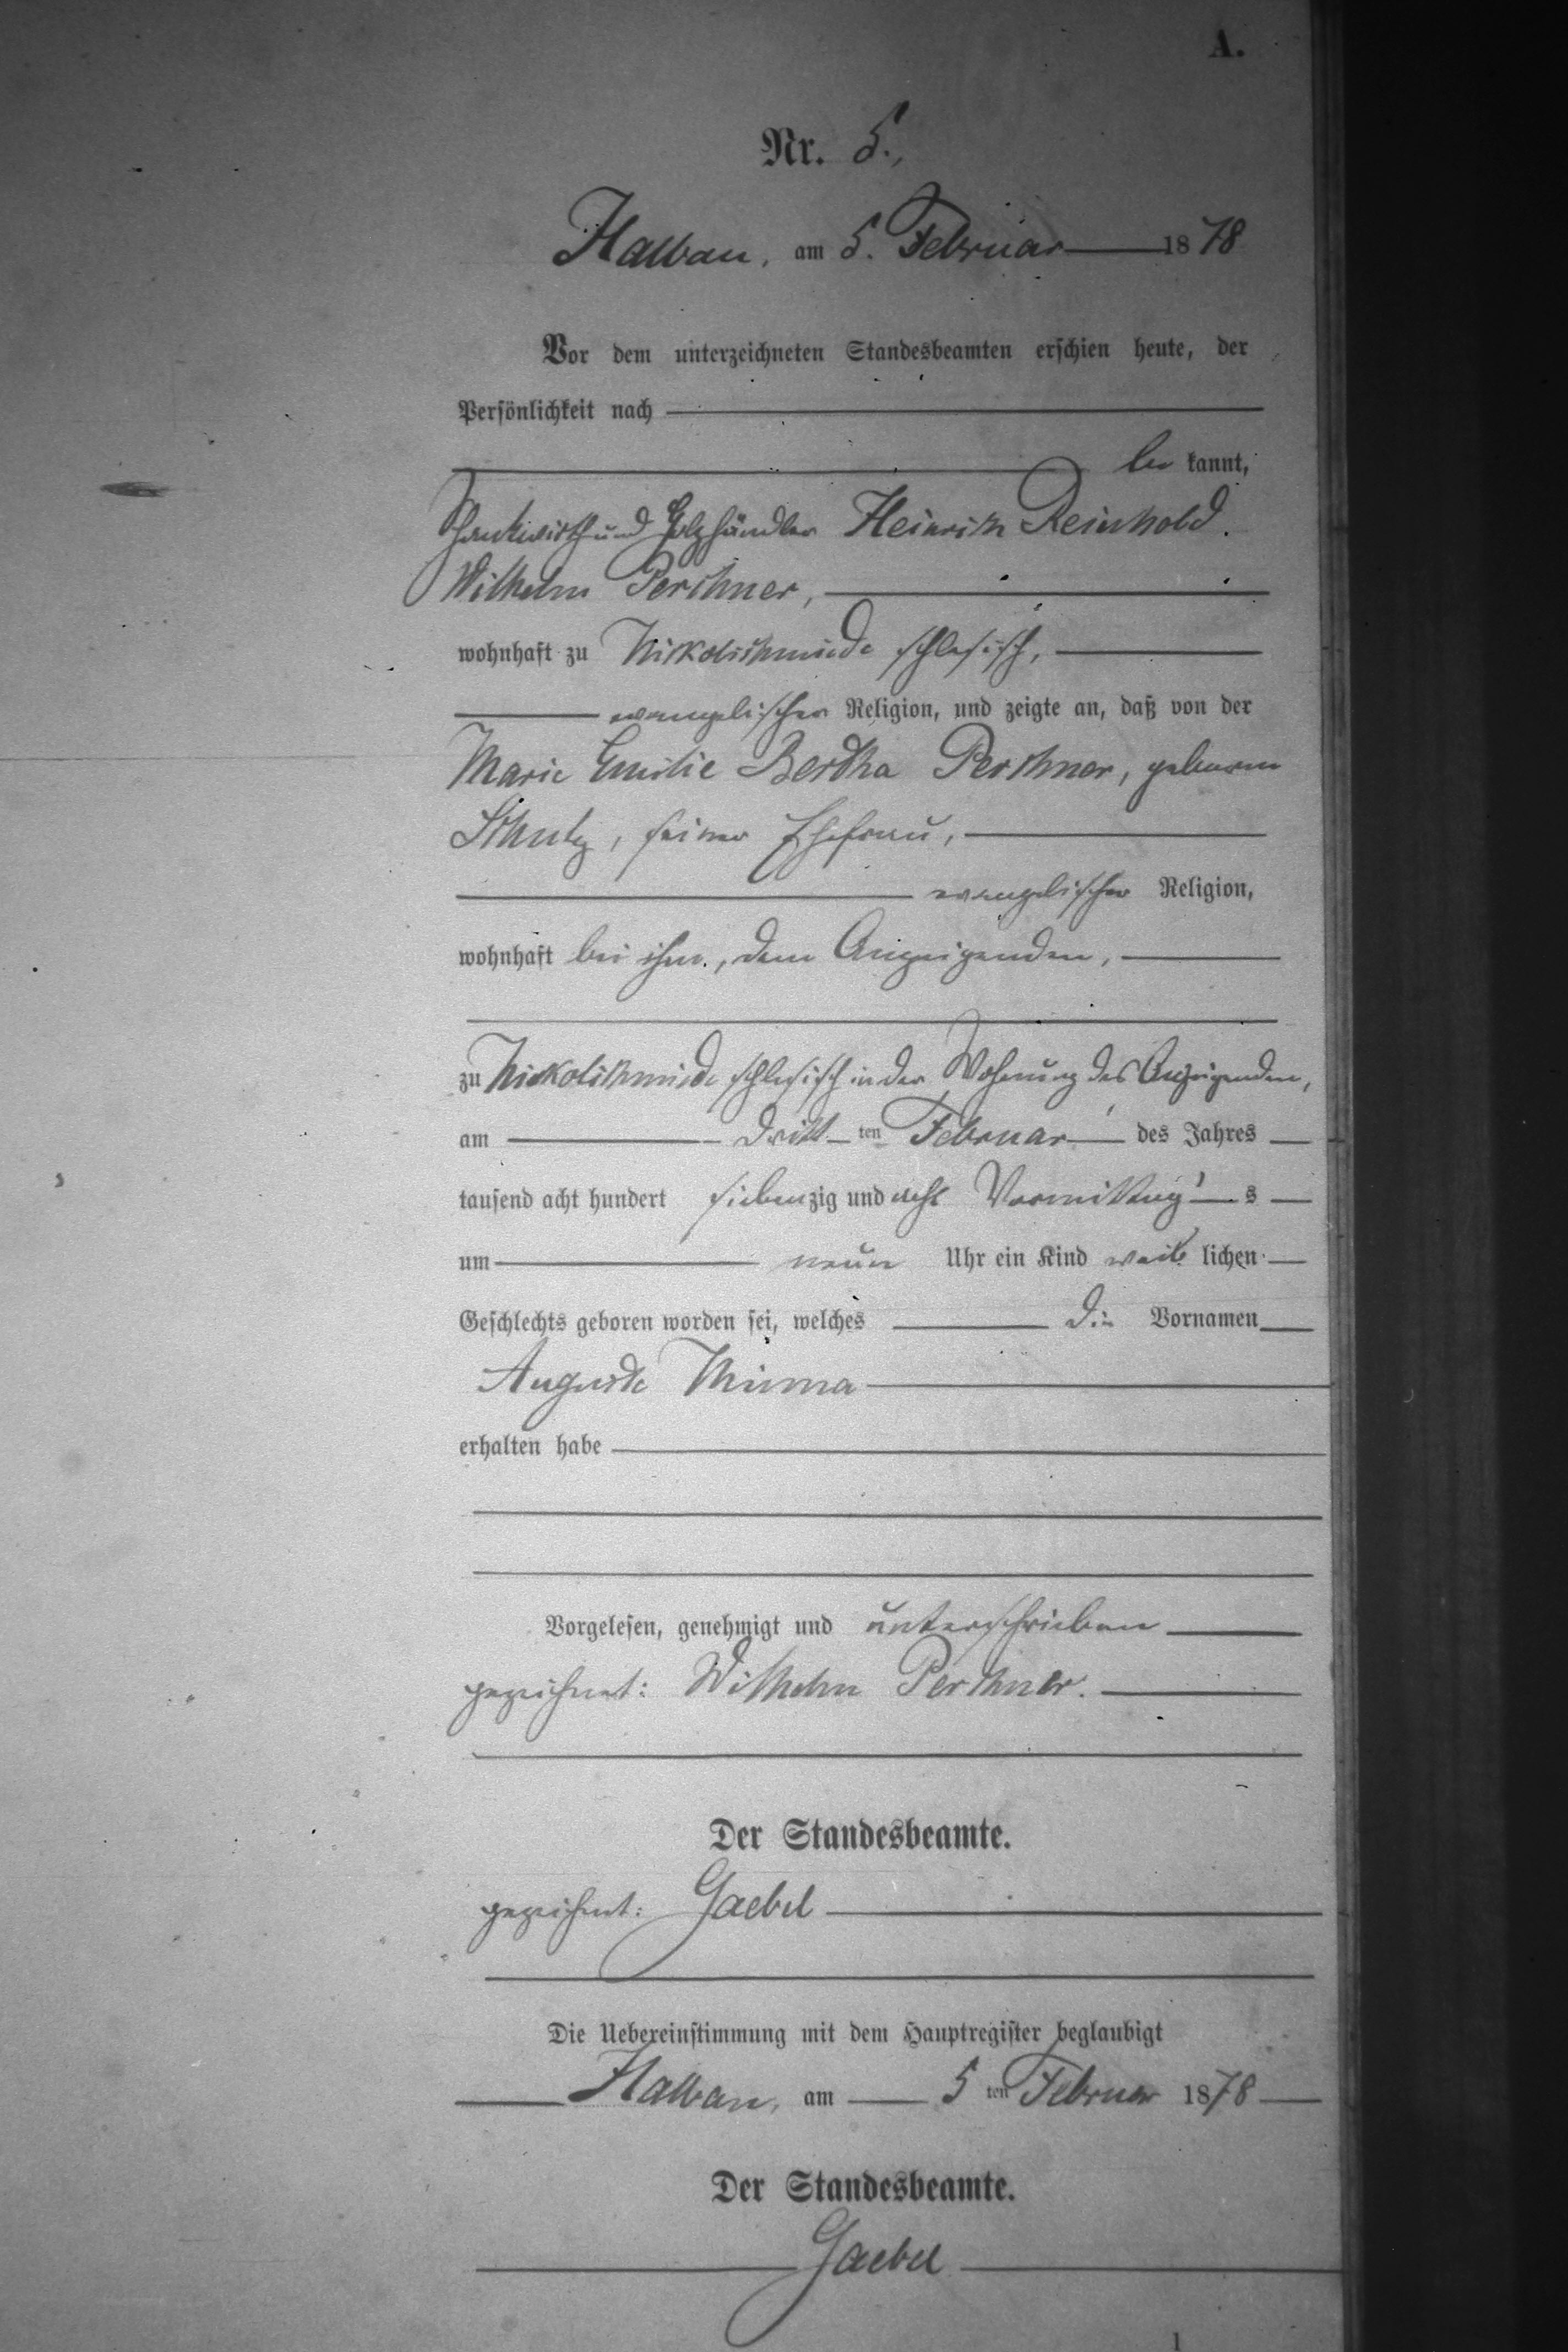 A.
Nr. 5.,
Halbau, am 5. Februar 1878
Vor dem unterzeichneten Standesbeamten erschien heute, der
Persönlichkeit nach
be kannt,
Schankwirth und Holzhändler Heinrich Reinhold
Wilhelm Perschner,
wohnhaft zu Nikolschmiede schlesisch,
evangelischer Religion, und zeigte an, daß von der
Marie Emilie Bertha Perschner, geborene
Schulz, seiner Ehefrau,
evangelischer Religion,
wohnhaft bei ihm, dem Anzeigenden,
zu Nickolschmiede schlesisch in der Wohnung des Anzeigenden,
am dritt ten Februar des Jahres
tausend acht hundert siebenzig und acht Vormittag s
um neun Uhr ein Kind weib lichen
Geschlechts geboren worden sei, welches die Vornamen
Auguste Minna
erhalten habe
Vorgelesen, genehmigt und unterschrieben
gezeichnet: Wilhelm Perschner.
Der Standesbeamte.
gezeichnet: Gaebel
Die Uebereinstimmung mit dem Hauptregister beglaubigt
Halbau, am 5 ten Februar 1878
Der Standesbeamte.
Gaebel
1